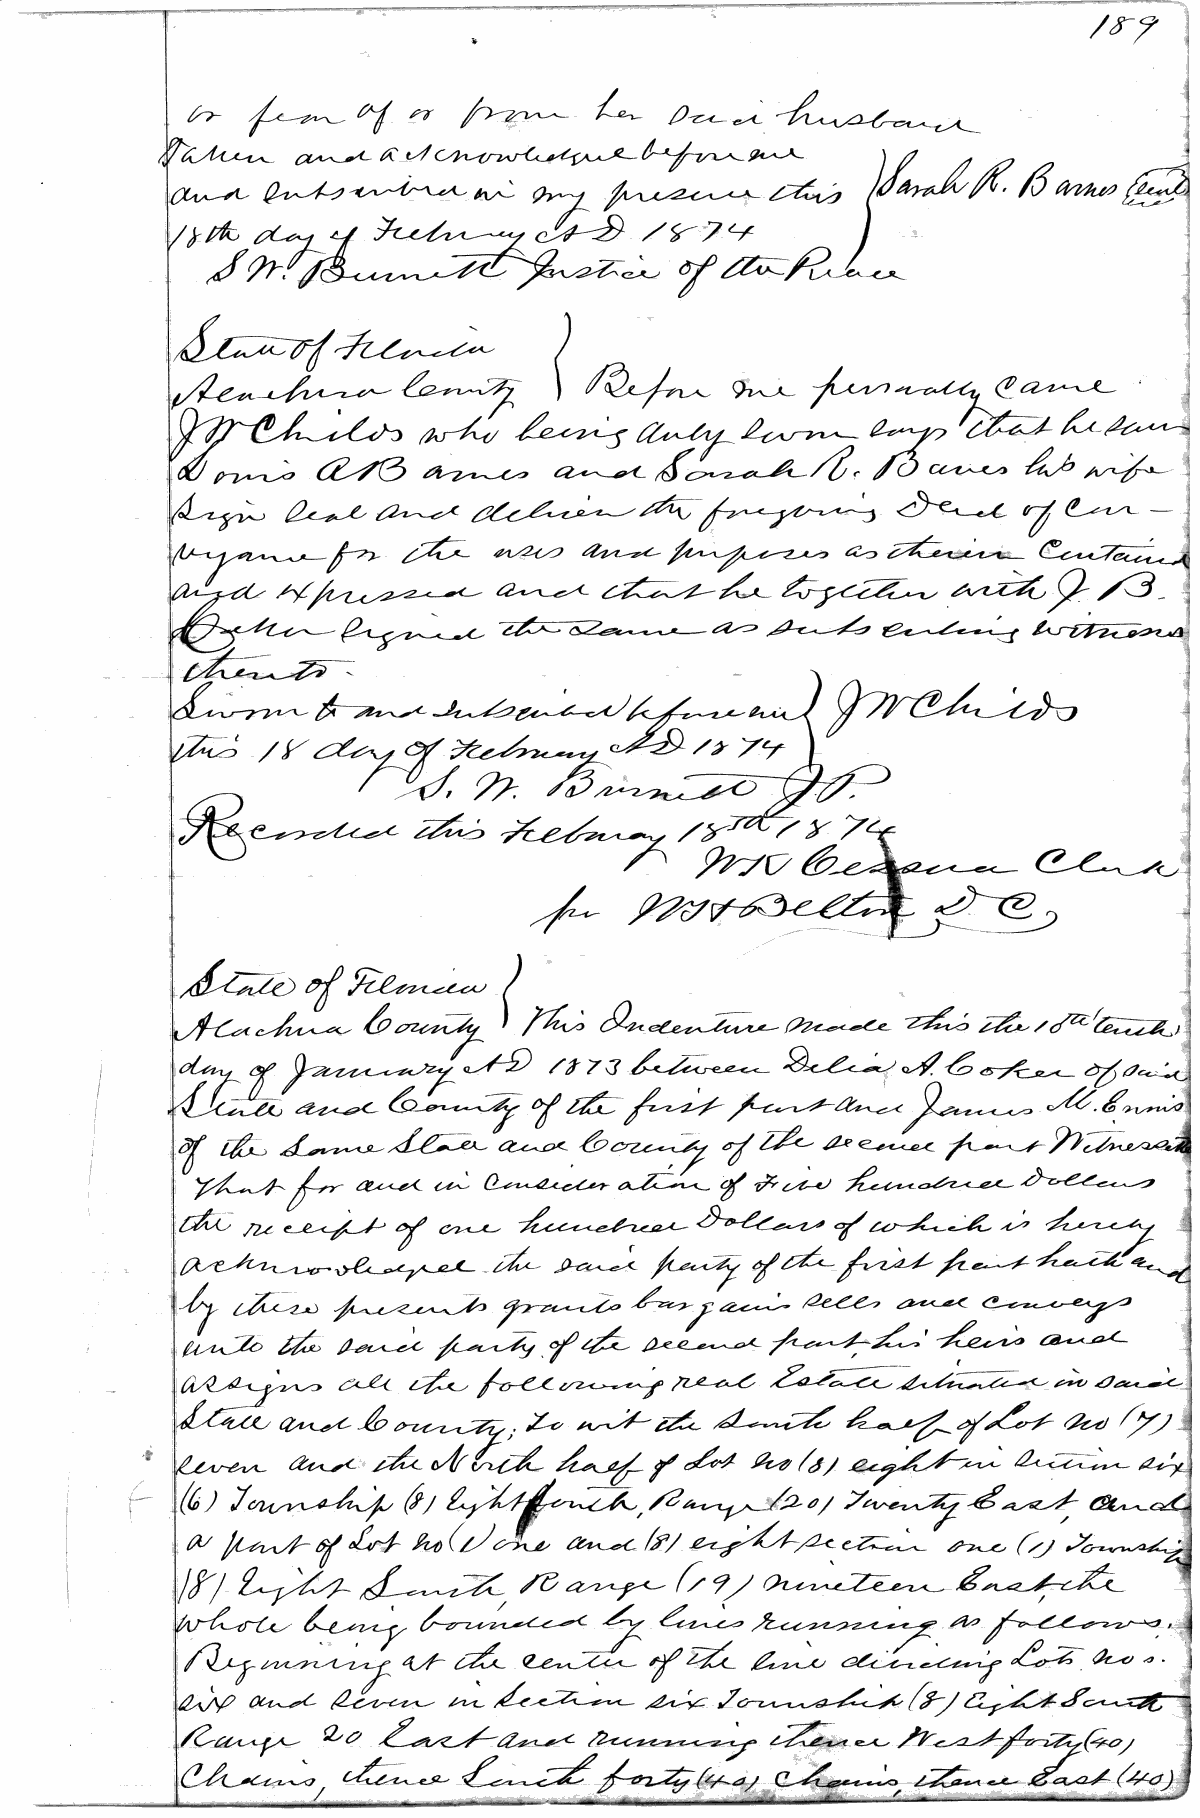 189
or fear of or from her said husband
Taken and acknowledged before me
and subscribed in my presence this } Sarah R. Barnes (Seal)
18th day of February AD 1874
S W. Burnett Justice of the Peace
State of Florida }
Alachua County } Before me personally came
J W Childs who being duly sworn says that he saw
A Barnes and Sarah R. Barnes his wife
sign seal and deliver the foregoing Deed of Con-
veyance for the uses and purposes as therein Contained
and expressed and that he together with J. B.
signed the same as subscribing witnesses
thereto.
Sworn to and subscribed before me } J W Childs
this 18 day of February AD 1874
S. W. Burnett J P.
Recorded this February 18th 1874
W K Cessna Clerk
per W H Belton D. C,
State of Florida }
Alachua County } This Indenture made this the 10th tenth
day of January AD 1873 between Delia A. Coker of said
State and County of the first part and James M. Ennis
of the Same State and County of the second part Witnesseth
That for and in Consideration of Five hundred Dollars
the receipt of one hundred Dollars of which is hereby
acknowledged the said party of the first part hath and
by these presents grants bargains sells and conveys
unto the said party of the second part, his heirs and
assigns all the following real Estate situated in said
State and County; To wit the South half of Lot no (7)
seven and the North half of Lot no (8) eight in section six
(6) Township (8) Eight South, Range (20) Twenty East, and
a part of Lot no (1) one and (8) eight section one (1) Township
(8) Eight South, Range (19) nineteen East, the
whole being bounded by lines running as follows.
Beginning at the center of the line dividing Lots nos.
six and seven in section six Township (8) Eight South
Range 20 East and running thence West forty (40)
Chains, thence South forty (40) Chains, thence East (40)